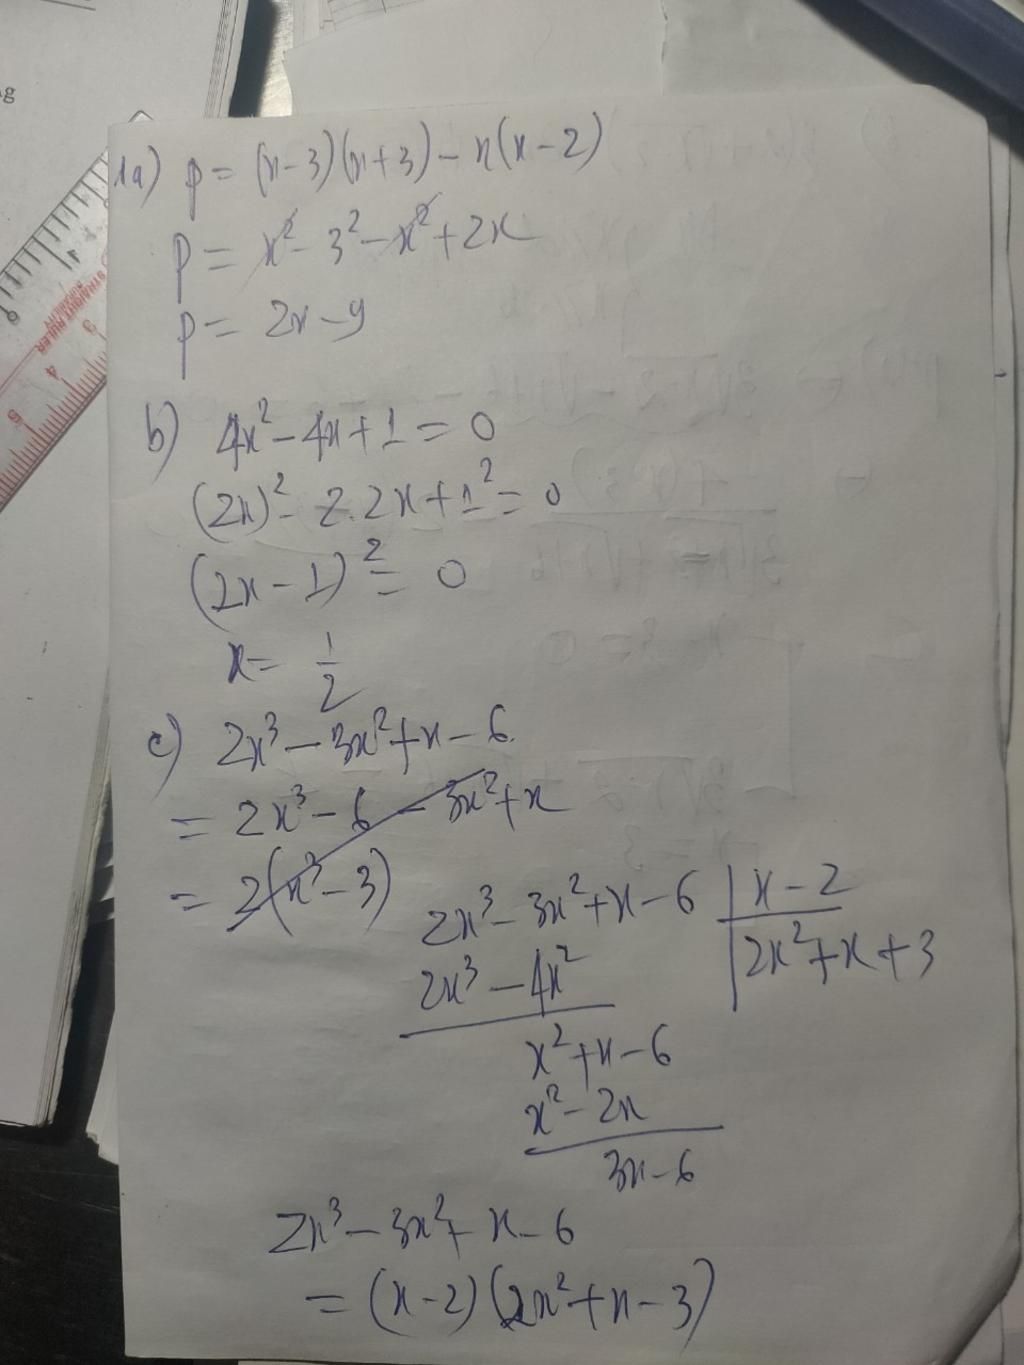 g
1a) p = (x-3)(x+3) - x(x-2)
p = x² - 3² - x² + 2x
p = 2x - 9
b) 4x² - 4x + 1 = 0
(2x)² - 2.2x + 1² = 0
(2x - 1)² = 0
x = 1/2
c) 2x³ - 3x² + x - 6
= 2x³ - 6 - 3x² + x
= 2(x³ - 3)
2x³ - 3x² + x - 6 | x - 2
2x³ - 4x² | 2x² + x + 3
x² + x - 6
x² - 2x
3x - 6
2x³ - 3x² + x - 6
= (x - 2)(2x² + x - 3)
STRAIGHT RULER
3
4
5